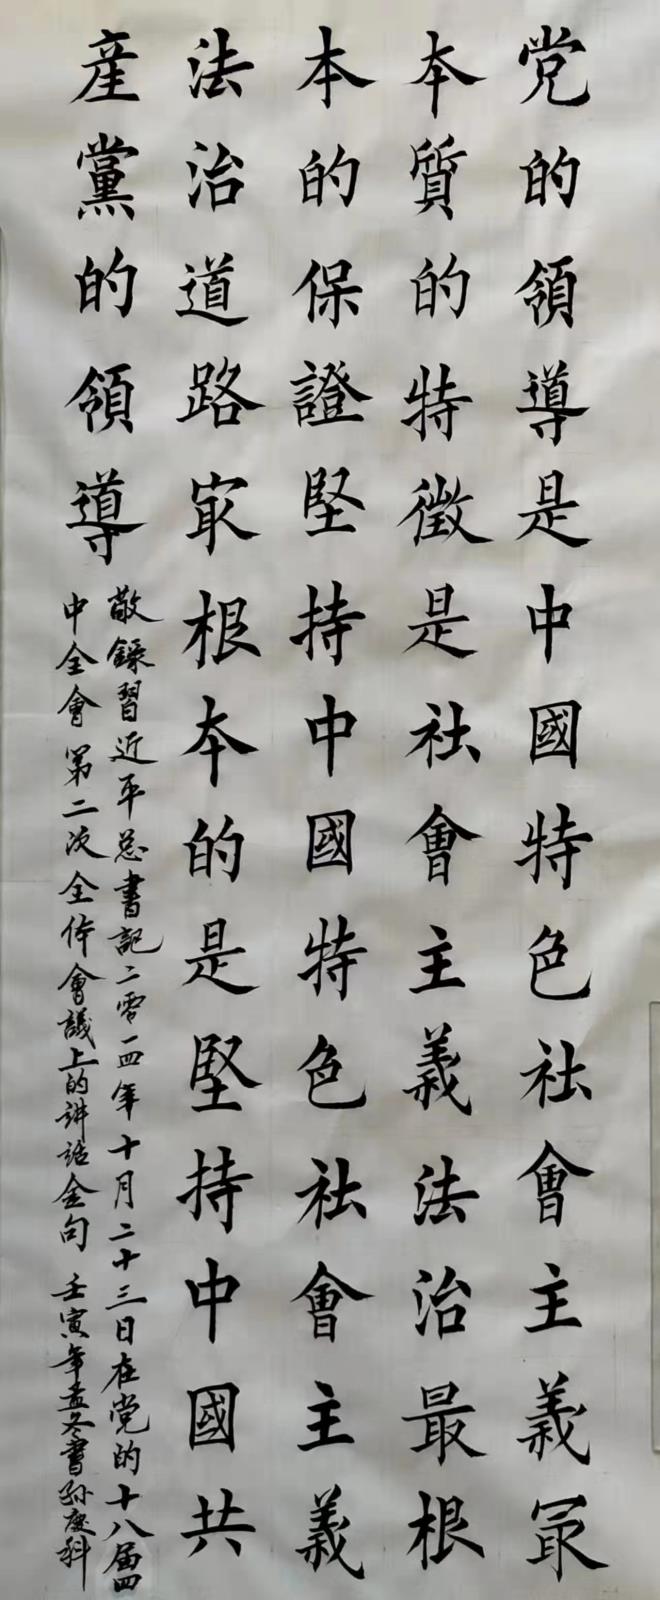 党的領導是中國特色社會主義冣
本質的特徵是社會主義法治最根
本的保證堅持中國特色社會主義
法治道路冣根本的是堅持中國共
産黨的領導
敬錄習近平总書記二零一四年十月二十三日在党的十八届四
中全會第二次全体會議上的讲話金句 壬寅年孟冬書孙庆科